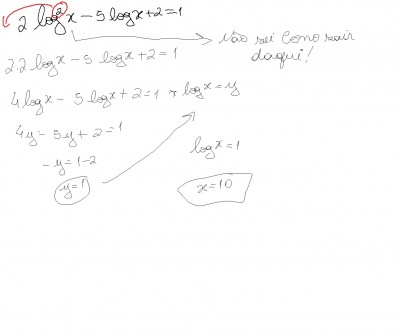 2 log²x - 5 log x + 2 = 1
Não sei como sair daqui!
2.2 log x - 5 log x + 2 = 1
4 log x - 5 log x + 2 = 1 * log x = y
4y - 5y + 2 = 1
- y = 1 - 2
y = 1
log x = 1
x = 10